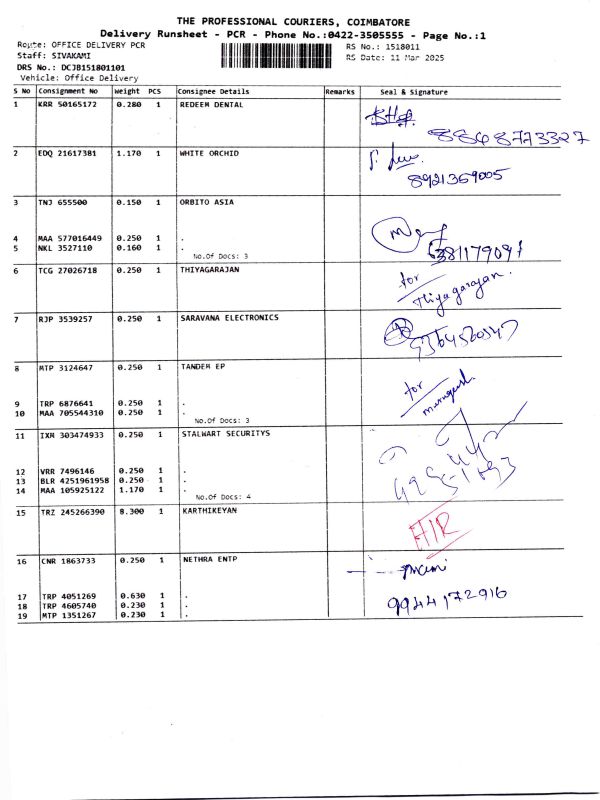 THE PROFESSIONAL COURIERS, COIMBATORE
Delivery Runsheet - PCR - Phone No.:0422-3505555 - Page No.:1
Route: OFFICE DELIVERY PCR
Staff: SIVAKAMI
DRS No.: DCJB151801101
Vehicle: Office Delivery
1518011
RS No.: 1518011
RS Date: 11 Mar 2025
S No Consignment No Weight PCS Consignee Details Remarks Seal & Signature
1 KRR 50165172 0.280 1 REDEEM DENTAL
8848773327
2 EDQ 21617381 1.170 1 WHITE ORCHID
8921369005
3 TNJ 655500 0.150 1 ORBITO ASIA
4 MAA 577016449 0.250 1 .
5 NKL 3527110 0.160 1 .
No.Of Docs: 3
6381179091
6 TCG 27026718 0.250 1 THIYAGARAJAN
for
Thiyagarajan.
7 RJP 3539257 0.250 1 SARAVANA ELECTRONICS
8 MTP 3124647 0.250 1 TANDEM EP
9 TRP 6876641 0.250 1 .
10 MAA 705544310 0.250 1 .
No.Of Docs: 3
for
murugesh.
11 IXM 303474933 0.250 1 STALWART SECURITYS
12 VRR 7496146 0.250 1 .
13 BLR 4251961958 0.250 1 .
14 MAA 105925122 1.170 1 .
No.Of Docs: 4
15 TRZ 245266390 8.300 1 KARTHIKEYAN
16 CNR 1863733 0.250 1 NETHRA ENTP
17 TRP 4051269 0.630 1 .
18 TRP 4605740 0.230 1 .
19 MTP 1351267 0.230 1 .
9944172916